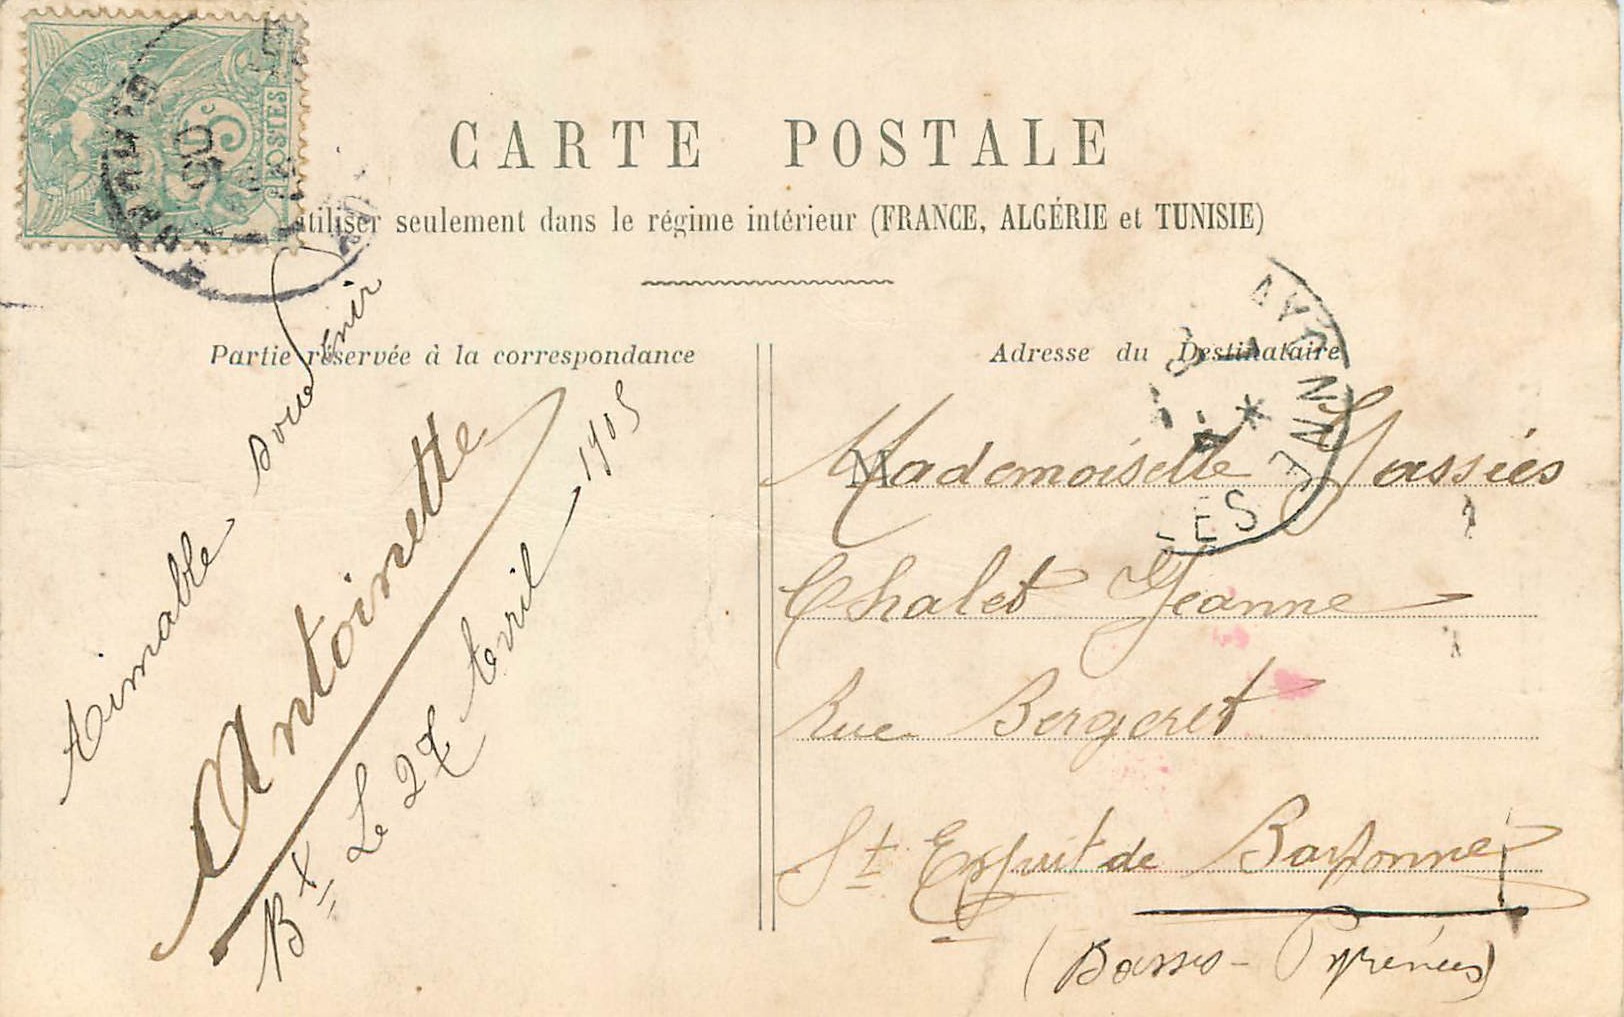 5c
POSTES
CARTE POSTALE
utiliser seulement dans le régime intérieur (FRANCE, ALGÉRIE et TUNISIE)
Partie réservée à la correspondance
Aimable souvenir
Antoinette
Bx Le 27 Avril 1905
Adresse du Destinataire
Mademoiselle
Chalet Jeanne
Rue Bergeret
St Esprit de Bayonne
(Basses-Pyrénées)